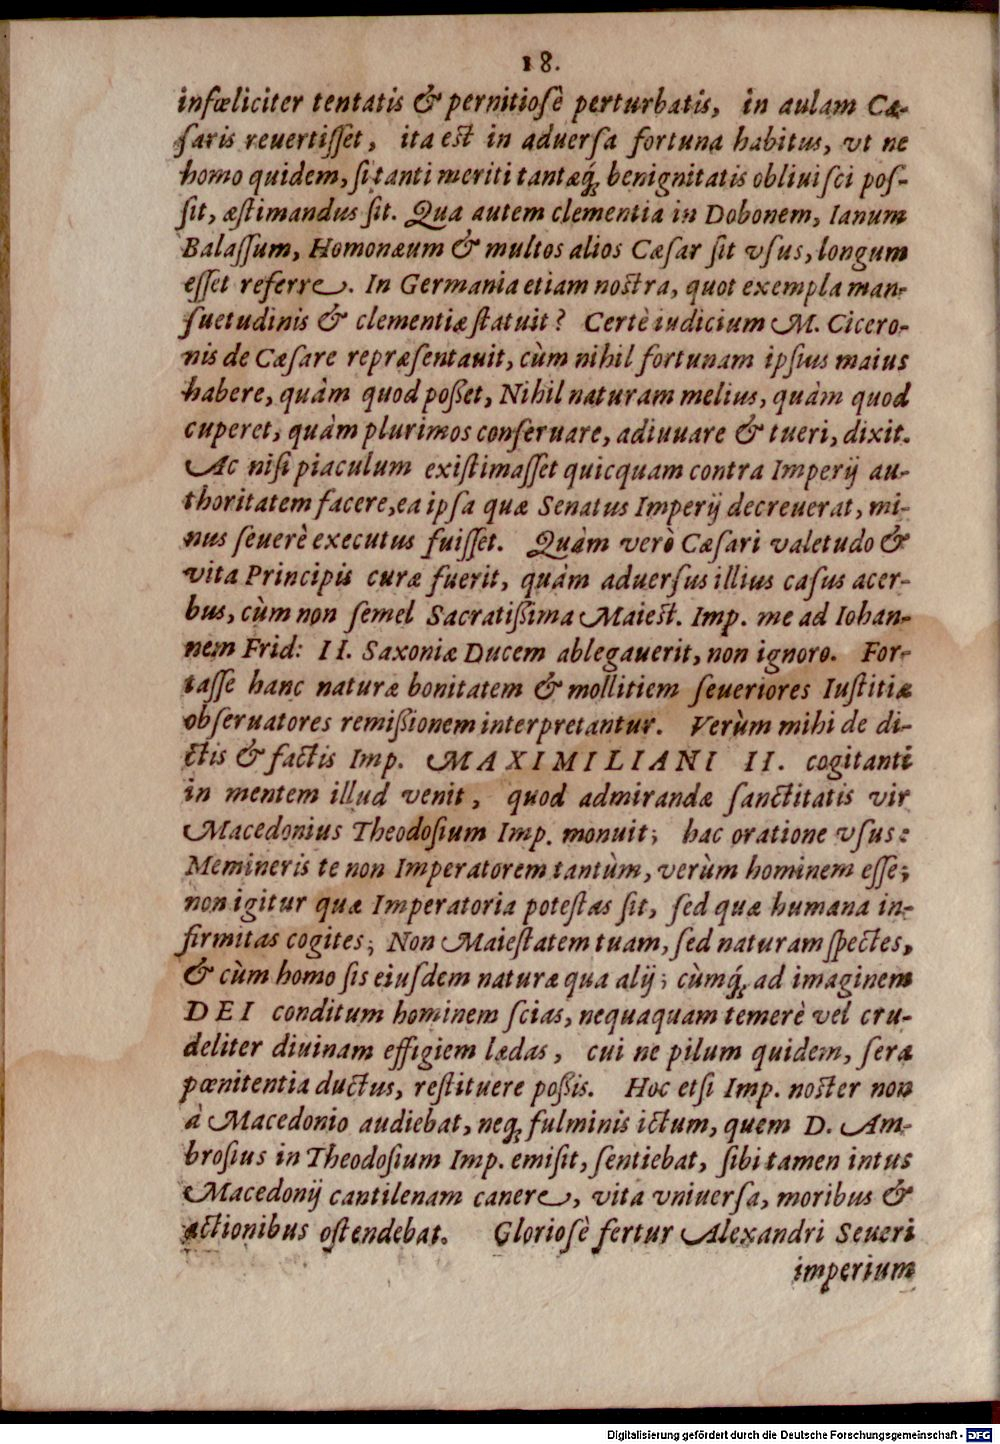 18.
infœliciter tentatis & pernitiosè perturbatis, in aulam Cæ-
saris reuertisset, ita est in aduersa fortuna habitus, vt ne
homo quidem, si tanti meriti tantæq́; benignitatis obliuisci pos-
sit, æstimandus sit. Qua autem clementia in Dobonem, Ianum
Balassum, Homonæum & multos alios Cæsar sit vsus, longum
esset referre. In Germania etiam nostra, quot exempla man-
suetudinis & clementiæ statuit? Certè iudicium M. Cicero-
nis de Cæsare repræsentauit, cùm nihil fortunam ipsius maius
habere, quàm quod poßet, Nihil naturam melius, quàm quod
cuperet, quàm plurimos conseruare, adiuuare & tueri, dixit.
Ac nisi piaculum existimasset quicquam contra Imperij au-
thoritatem facere, ea ipsa quæ Senatus Imperij decreuerat, mi-
nus seuerè executus fuisset. Quàm verò Cæsari valetudo &
vita Principis curæ fuerit, quàm aduersus illius casus acer-
bus, cùm non semel Sacratißima Maiest. Imp. me ad Iohan-
nem Frid: II. Saxoniæ Ducem ablegauerit, non ignoro. For-
tasse hanc naturæ bonitatem & mollitiem seueriores Iustitiæ
obseruatores remißionem interpretantur. Verùm mihi de di-
ctis & factis Imp. MAXIMILIANI II. cogitanti
in mentem illud venit, quod admirandæ sanctitatis vir
Macedonius Theodosium Imp. monuit; hac oratione vsus:
Memineris te non Imperatorem tantùm, verùm hominem esse;
non igitur quæ Imperatoria potestas sit, sed quæ humana in-
firmitas cogites; Non Maiestatem tuam, sed naturam spectes,
& cùm homo sis eiusdem naturæ qua alij; cùmq́; ad imaginem
DEI conditum hominem scias, nequaquam temerè vel cru-
deliter diuinam effigiem lædas, cui ne pilum quidem, sera
pœnitentia ductus, restituere poßis. Hoc etsi Imp. noster non
à Macedonio audiebat, neq; fulminis ictum, quem D. Am-
brosius in Theodosium Imp. emisit, sentiebat, sibi tamen intus
Macedonij cantilenam canere, vita vniuersa, moribus &
actionibus ostendebat. Gloriosè fertur Alexandri Seueri
imperium
Digitalisierung gefördert durch die Deutsche Forschungsgemeinschaft - DFG